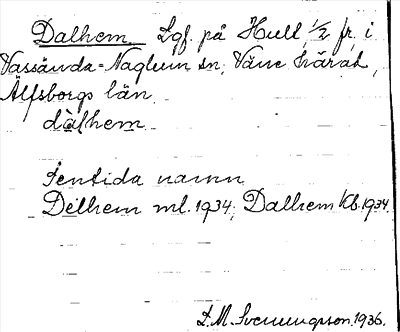 Dalhem Lgf. på Hull 1/2 fr. i
Vassända-Naglum sn, Väne härad,
Älfsborgs län
dalhem
Sentida namn
Delhem ml. 1934; Dalhem Kb. 1934.
L.M. Svenungsson. 1936.